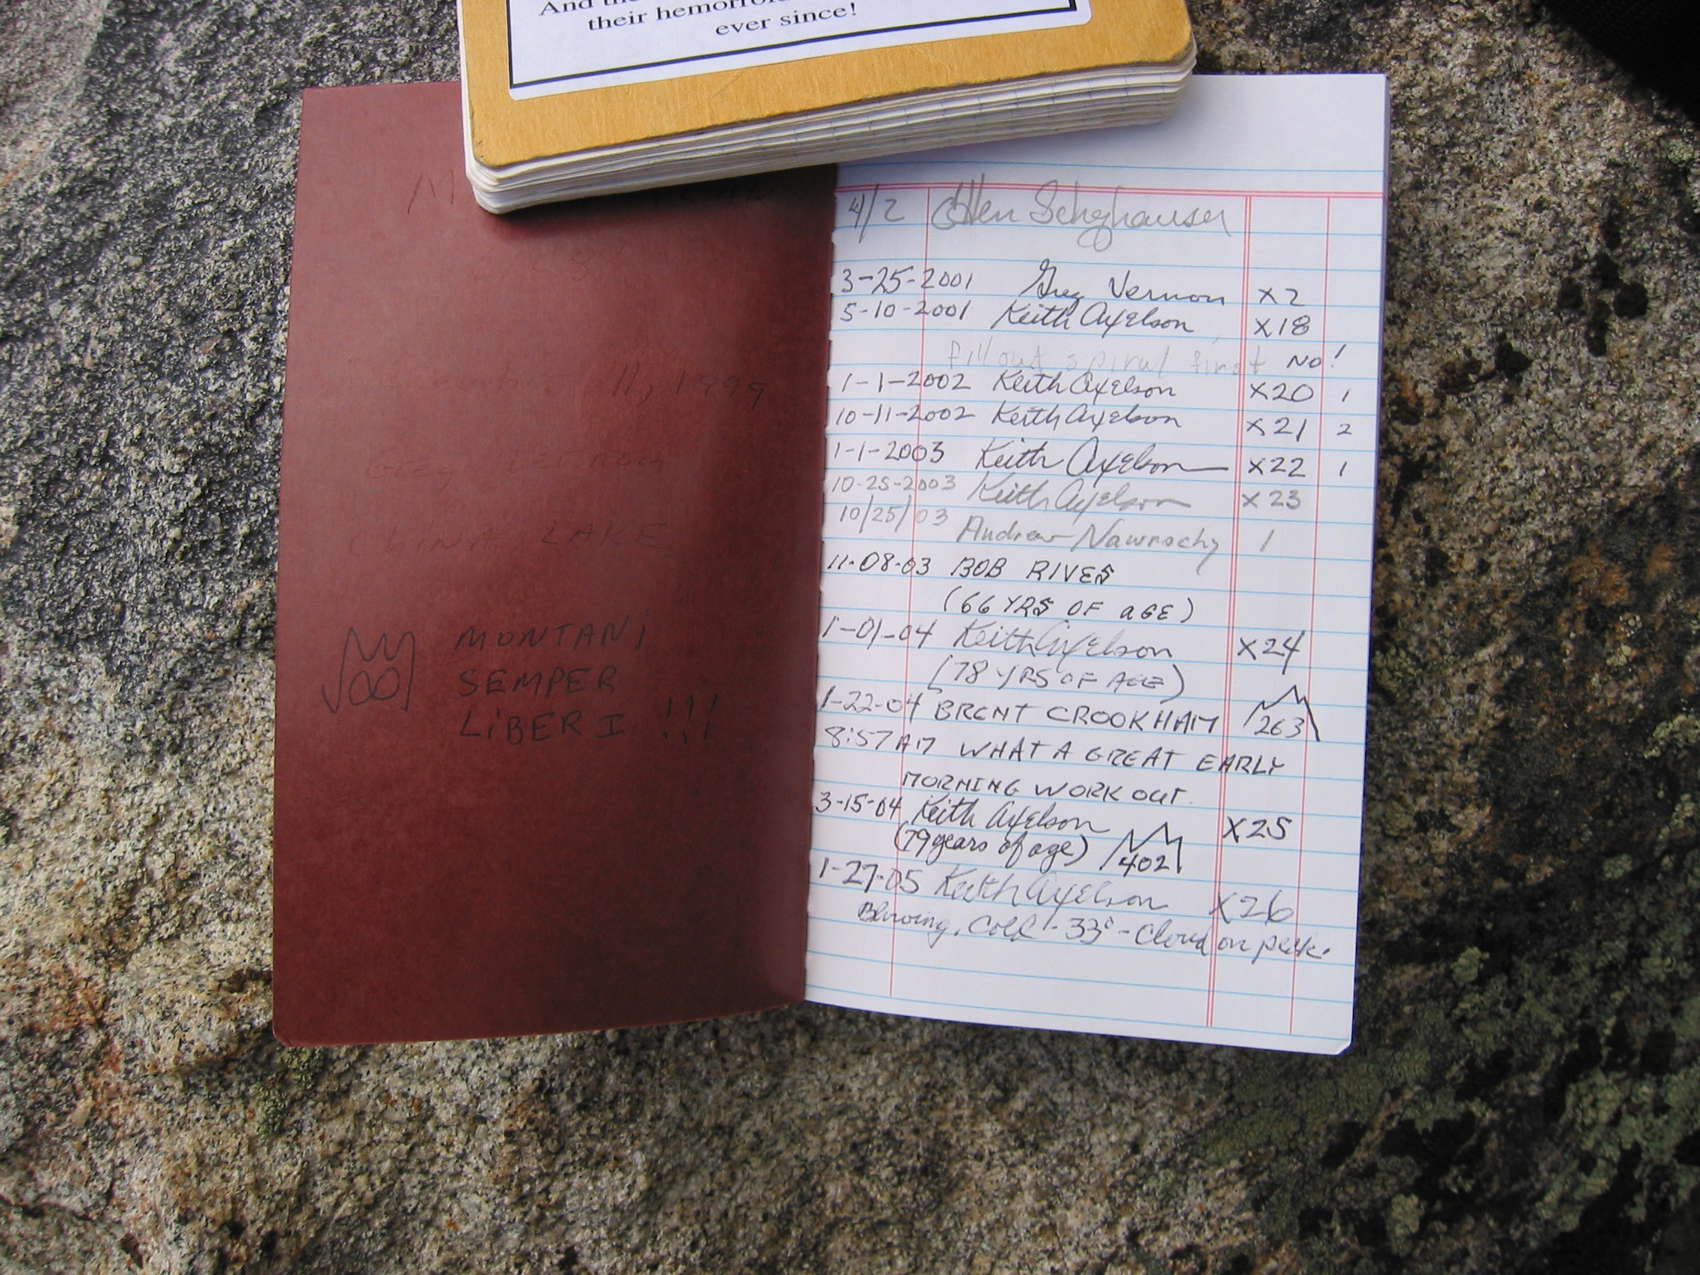 And the
their hemorroids
ever since!
11, 1999
CHINA LAKE
MONTANI
SEMPER
LIBERI !!!
4/2
3-25-2001 Greg Vernon x2
5-10-2001 Keith Axelson x18
fill out spiral first NO!
1-1-2002 Keith Axelson x20 1
10-11-2002 Keith Axelson x21 2
1-1-2003 Keith Axelson x22 1
10-25-2003 Keith Axelson x23
10/25/03 Andrew Nawrocky 1
11-08-03 BOB RIVES
(66 YRS OF AGE)
1-01-04 Keith Axelson x24
(78 YRS OF AGE)
1-22-04 BRENT CROOKHAM 263
8:57AM WHAT A GREAT EARLY
MORNING WORK OUT.
3-15-04 Keith Axelson x25
(79 years of age) 402
1-27-05 Keith Axelson x26
Blowing, Cold - 33° - Cloud on peak.